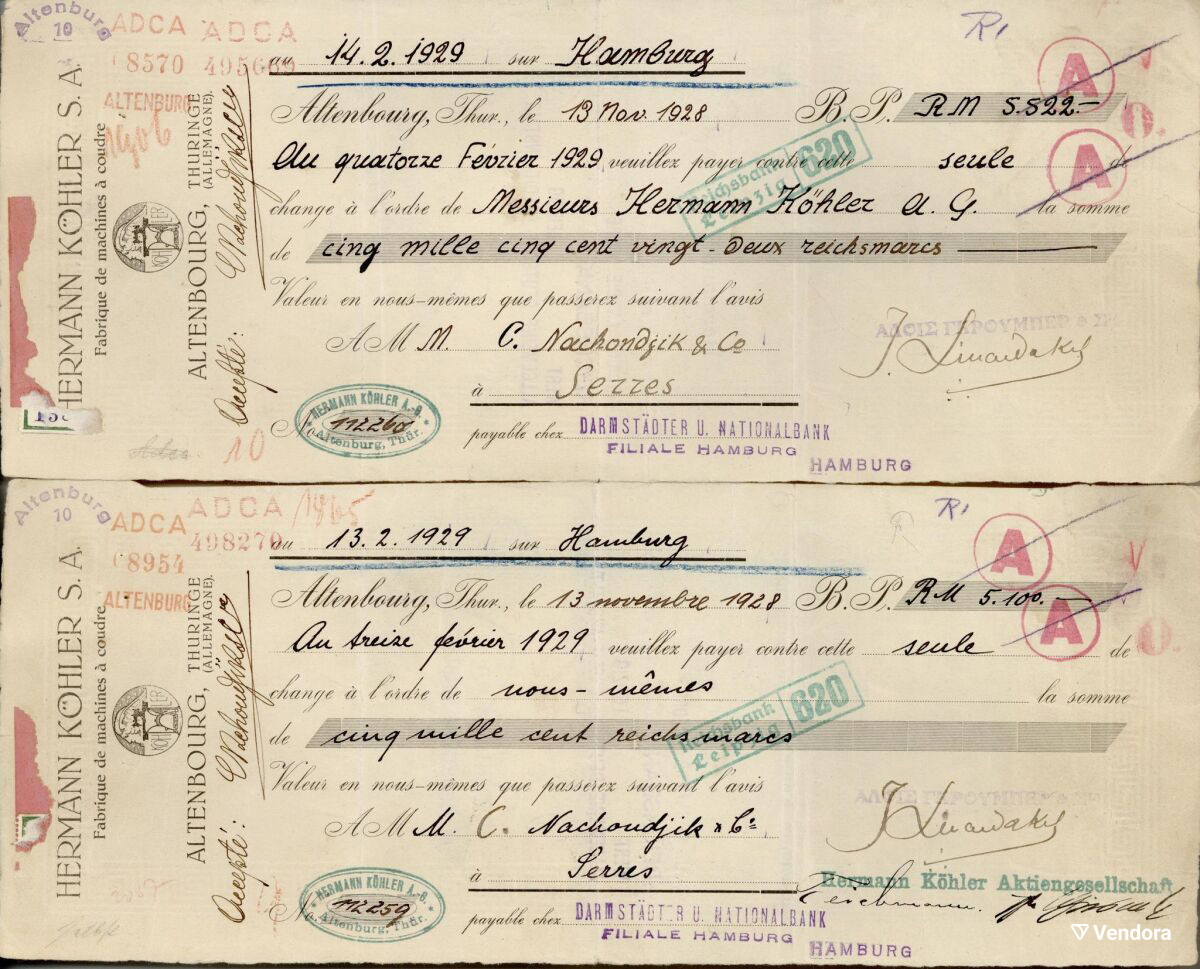 Altenburg
10
ADCA ADCA
8570 495669
ALTENBURG
1906
HERMANN KÖHLER S. A.
Fabrique de machines à coudre
KÖHLER
ALTENBOURG, THURINGE
(ALLEMAGNE).
Accepté:
R1
au 14.2.1929 sur Hamburg
A
Altenbourg, Thur., le 13 Nov. 1928 B. P. RM 5.522.—
Au quatorze Février 1929 veuillez payer contre cette seule de
A
Reichsbank
Leipzig 620
change à l'ordre de Messieurs Hermann Köhler A. G. la somme
de cinq mille cinq cent vingt-deux reichsmarcs
Valeur en nous-mêmes que passerez suivant l'avis
ΑΛΟΙΣ ΓΚΡΟΥΜΠΕΡ
A M M. C. Nachondjik & Co
à Serres
HERMANN KÖHLER A.-G.
No 112260
Altenburg, Thür.
10
payable chez DARMSTÄDTER U. NATIONALBANK
FILIALE HAMBURG
HAMBURG
Altenburg
10
ADCA ADCA 1905
8954 498279
ALTENBURG
HERMANN KÖHLER S. A.
Fabrique de machines à coudre
KÖHLER
ALTENBOURG, THURINGE
(ALLEMAGNE).
Accepté:
R1
au 13.2.1929 sur Hamburg
A
Altenbourg, Thur., le 13 novembre 1928 B. P. RM 5.100.—
Au treize février 1929 veuillez payer contre cette seule de
A
change à l'ordre de nous-mêmes la somme
Reichsbank
Leipzig 620
de cinq mille cent reichsmarcs
Valeur en nous-mêmes que passerez suivant l'avis
ΑΛΟΙΣ ΓΚΡΟΥΜΠΕΡ
A M M. C. Nachoudjik & Co
à Serres
Hermann Köhler Aktiengesellschaft
HERMANN KÖHLER A.-G.
No 112259
Altenburg, Thür.
payable chez DARMSTÄDTER U. NATIONALBANK
FILIALE HAMBURG
HAMBURG
Vendora